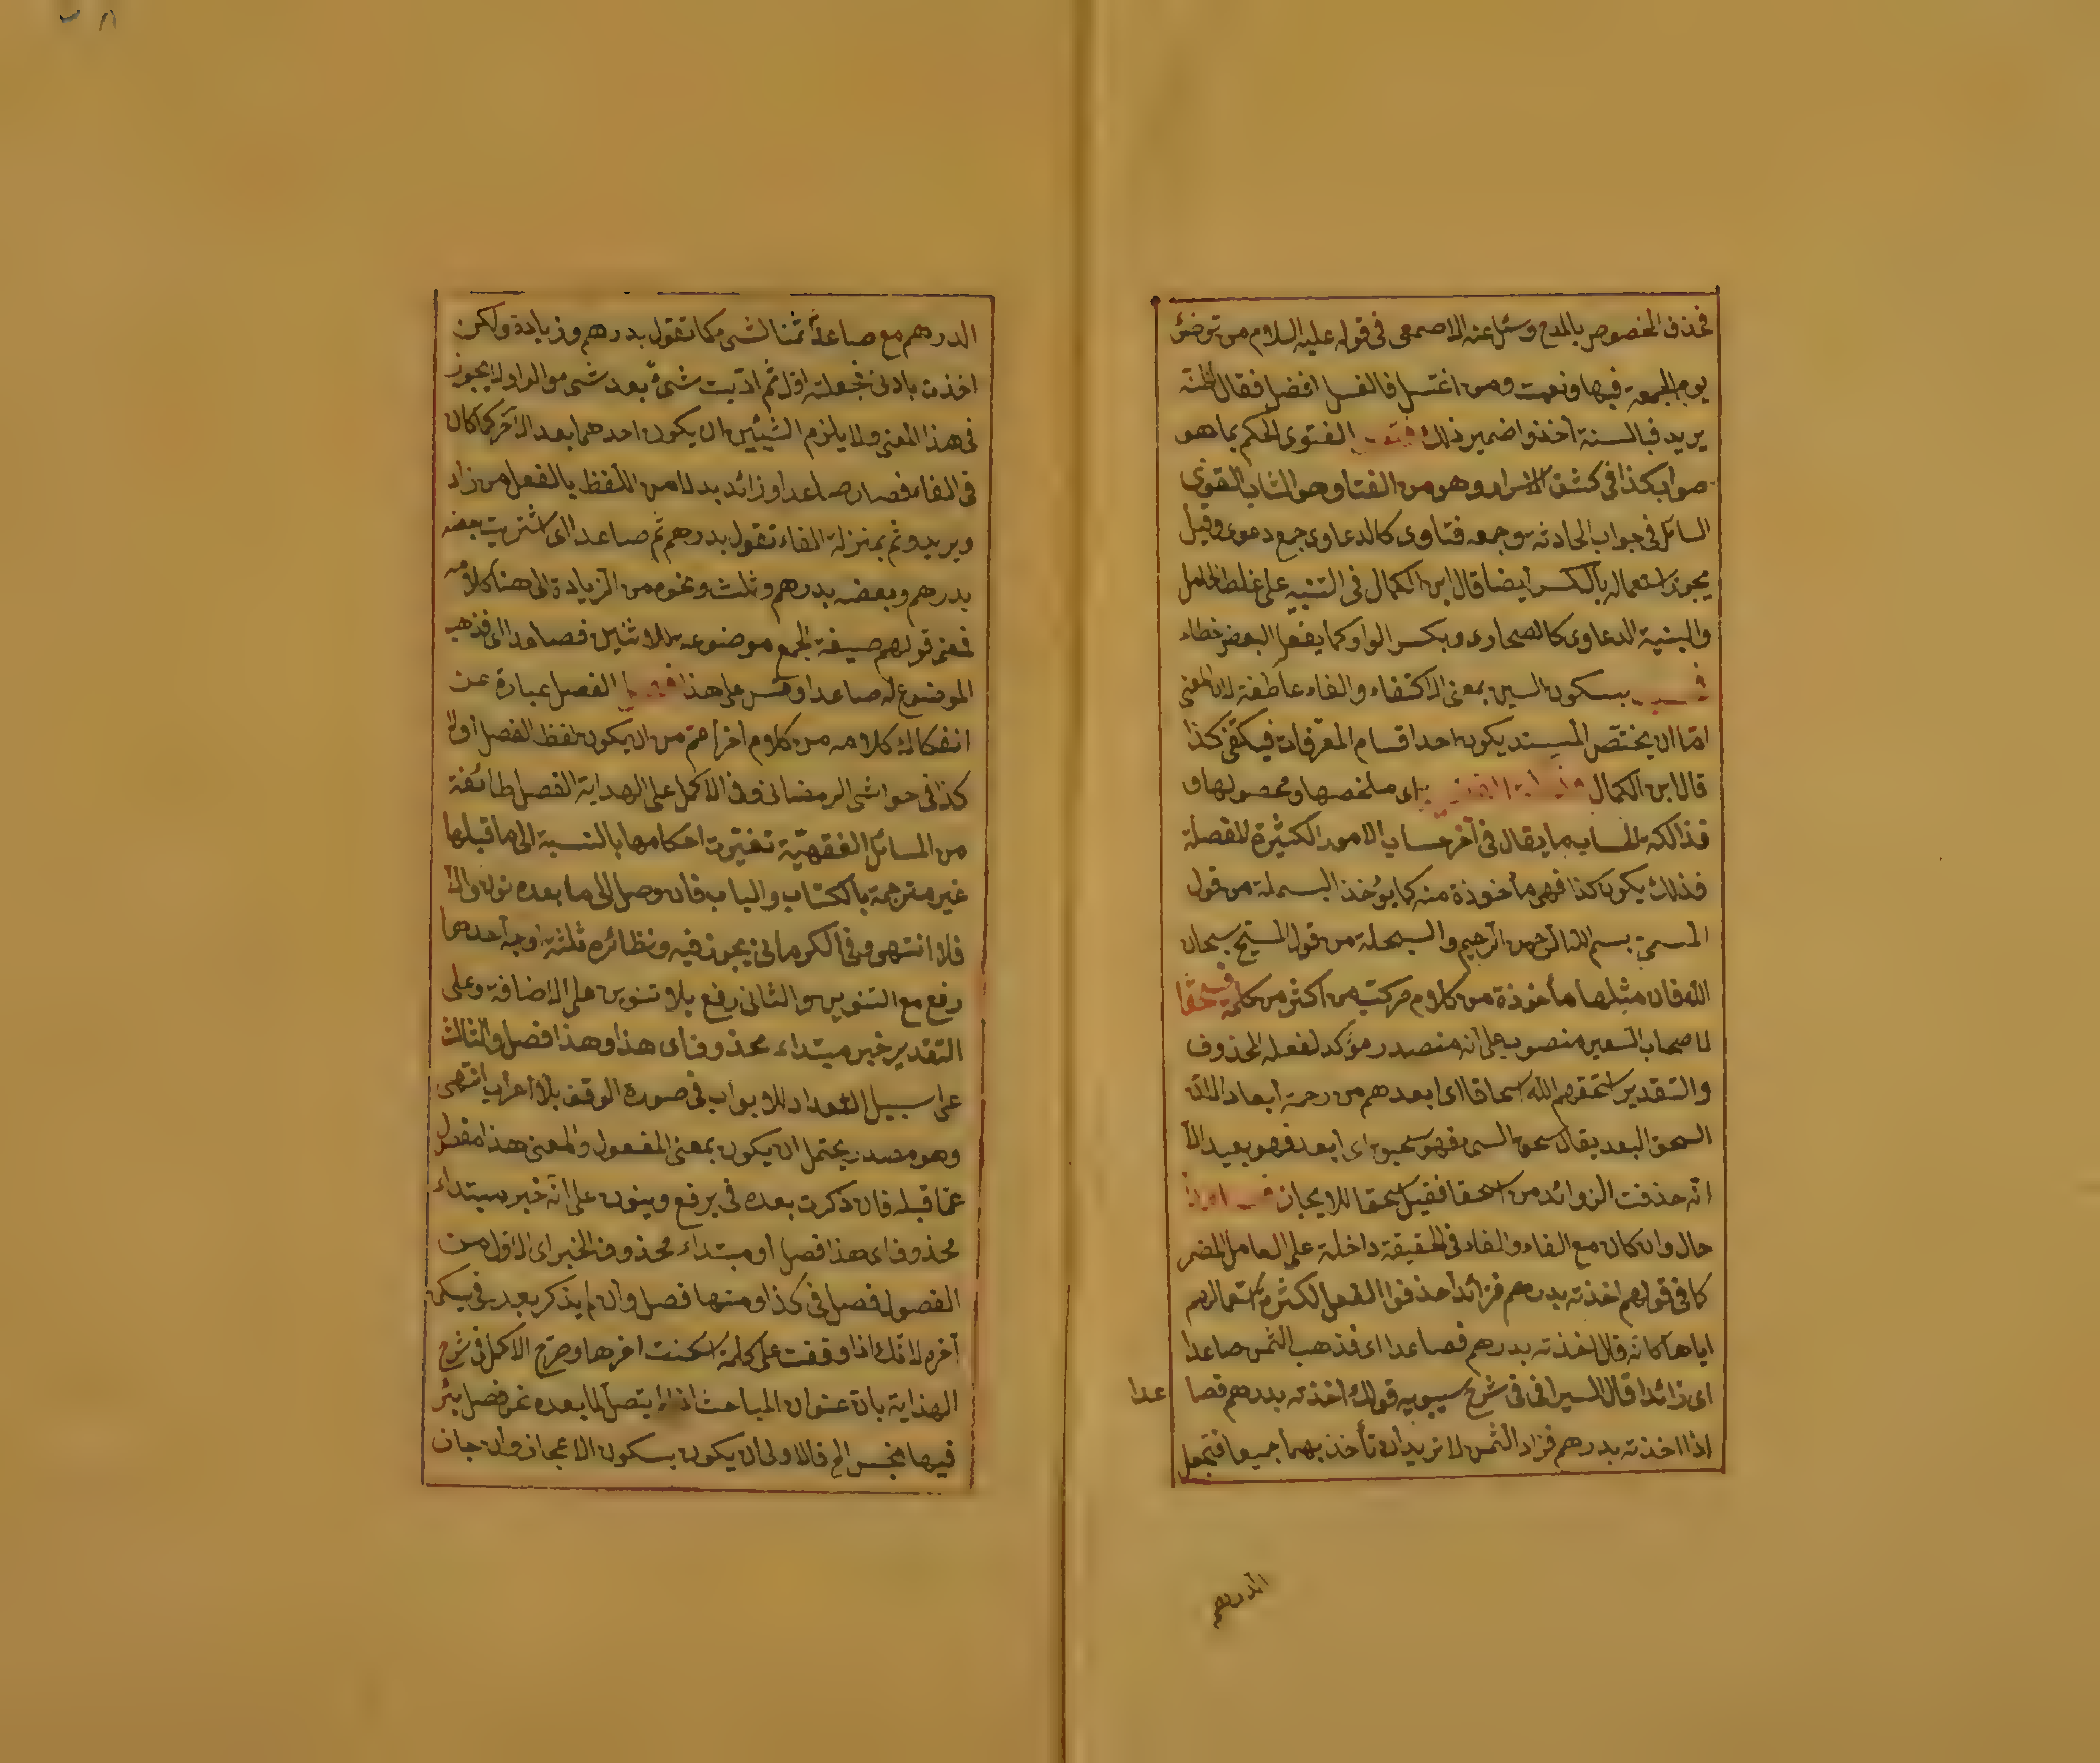 فحذف المخصوص بالمدح وسئل عنه الاصمعى فى قوله عليه السلام من توضئ
يوم الجمعة فبها ونعمت ومن اغتسل فالغسل افضل فقال اظنه
يريد فبالسنة اخذوا ضمير ذلك فتوى الفتوى الحكم بما هو
صواب كذا فى كشف الاسرار وهو من الفتا وهو الشاب القوى
السائل فى جواب الحادثه وجمعه فتاوى كالدعاوى جمع دعوى وقيل
يجوز استعماله بالكسر ايضا قال ابن الكمال فى التنبيه على غلط الخامل
والبنية الدعاوى كالصحارى وبكسر الواو كما يفعل البعض خطاء
بسكون السين بمعنى الاكتفاء والفاء عاطفة لان المعنى
اما ان يختص المسند يكون احد اقسام المعرفات فيكفى كذا
قال ابن الكمال اى ملخصها ومحصولها و
فذالكة الحساب ما يقال فى آخر حساب الامور الكثيرة المفصلة
فذلك يكون كذا فهى مأخوذة منه كما يؤخذ البسملة من قول
المسمى بسم الله الرحمن الرحيم والسبحلة من قول المسبح سبحان
الله فان مثلها مأخوذة من كلام مركب من اكثر من كلمة فسحقا
لاصحاب السعير منصوب على انه مصدر مؤكد لفعله المحذوف
والتقدير اسحقهم الله اسحاقا اى ابعدهم من رحمة ابعادا لان
السحق البعد يقال سحق الشىء فهو سحيق اى ابعد فهو بعيد الا
انه حذفت الزوائد من اسحقا فقيل سحقا للايجاز
حال وان كان مع الفاء والفاء فى الحقيقة داخلة على العامل المضمر
كما فى قولهم اخذته بدرهم فزائدا حذفوا الفعل لكثرة استعمالهم
اياها كانه قال اخذته بدرهم فصاعدا اى فذهب الثمن صاعدا
اى زائدا قال السيرافى فى شرح سيبويه قولك اخذته بدرهم فصا عدا
اذا اخذته بدرهم فزاد الثمن لا تريد ان تأخذ بهما جميعا فتجعل
الدرهم
الدرهم مع صاعدا ثمنا لشىء كما تقول بدرهم وزيادة ولكن
اخذت بادنى فجعلته اول ثم اتيت شىء بعد شىء والواو لا يجوز
فى هذا المعنى ولا يلزم الشيئين ان يكون احدهما بعد الآخر كما كان
فى الفاء فصار صاعدا وزائد بدلا من اللفظ بالفعل من زاد
ويريد وثم بمنزلة الفاء تقول بدرهم ثم صاعدا اى اشتريت بعضه
بدرهم وبعضه بدرهم وثلث ونحوه من الزيادة الى هنا كلامه
فمعنى قولهم صيغة الجمع موضوعه للاثنين فصاعدا اى فذهب
الموضوع له صاعدا وقس على هذا الفصل عبارة عن
انفكاك كلامه من كلام آخر اعم من ان يكون بلفظ الفصل اولا
كذا فى حواشى الرمضانى وفى الاكمل على الهداية الفصل طائفة
من المسائل الفقهية تغيرت احكامها بالنسبة الى ما قبلها
غير مترجمة بالكتاب والباب فان وصل الى ما بعده نون والا
فلا انتهى وفى الكرمانى يجوز فيه ونظائره ثلثة اوجه احدها
رفع مع التنوين والثانى رفع بلا تنوين على الاضافة وعلى
التقدير خبر مبتداء محذوف اى هذا وهذا فصل والثالث
على سبيل التعداد للابواب فى صورة الوقف بلا اعراب انتهى
وهو مصدر يحتمل ان يكون بمعنى المفعول والمعنى هذا مفصول
عما قبله فان ذكرت بعده فى يرفع وينون على انه خبر مبتداء
محذوف اى هذا فصل او مبتداء محذوف الخبر اى الاول من
الفصول فصل فى كذا ومنها فصل وان لم يذكر بعد فى يسكن
آخره لانك اذا وقفت على كلمة اسكنت آخرها وصرح الاكمل فى شرح
الهداية بان عنوان المباحث اذا لم يتصل لما بعده نحو فصل بئر
فيها نجس الخ فالاولى ان يكون بسكون الاعجاز وان جاز